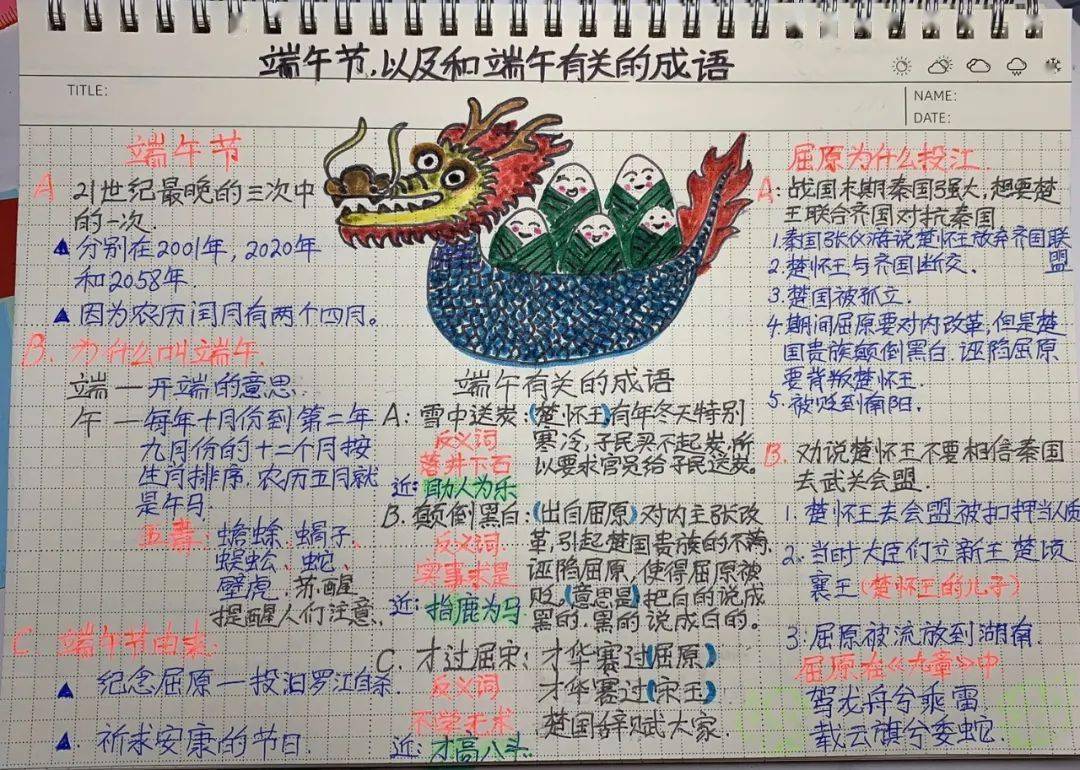 端午节,以及和端午有关的成语
TITLE:
NAME:
DATE:
端午节
A 21世纪最晚的三次中
的一次.
▲分别在2001年,2020年
和2058年.
▲因为农历闰月有两个四月。
B. 为什么叫端午.
端—开端的意思.
午—每年十月份到第二年
九月份的十二个月按
生肖排序.农历五月就
是午马.
五毒:蟾蜍、蝎子、
蜈蚣、蛇、
壁虎.苏醒
提醒人们注意.
C 端午节由来:
▲ 纪念屈原—投汨罗江自杀.
▲ 祈求安康的节日.
端午有关的成语
A:雪中送炭:(楚怀王)有年冬天特别
寒冷,子民买不起炭,所
以要求官员给子民送炭。
反义词
落井下石
近:助人为乐
B.颠倒黑白:(出自屈原)对内主张改
革,引起楚国贵族的不满,
诬陷屈原,使得屈原被
贬。(意思是)把白的说成
黑的.黑的说成白的。
反义词
实事求是
近:指鹿为马
C.才过屈宋:才华赛过(屈原)
才华赛过(宋王)
楚国辞赋大家.
反义词
不学无术
近:才高八斗.
屈原为什么投江.
A:战国末期秦国强大,想要楚
王联合齐国对抗秦国
1.秦国张仪游说楚怀王放弃齐国联
盟
2.楚怀王与齐国断交.
3.楚国被孤立.
4.期间屈原要对内改革,但是楚
国贵族颠倒黑白.诬陷屈原
要背叛楚怀王.
5.被贬到南阳.
B.劝说楚怀王不要相信秦国
去武关会盟.
1.楚怀王去会盟被扣押当人质
2.当时大臣们立新王楚顷
襄王(楚怀王的儿子)
3.屈原被流放到湖南.
屈原在《九章》中
驾龙舟兮乘雷
载云旗兮委蛇.